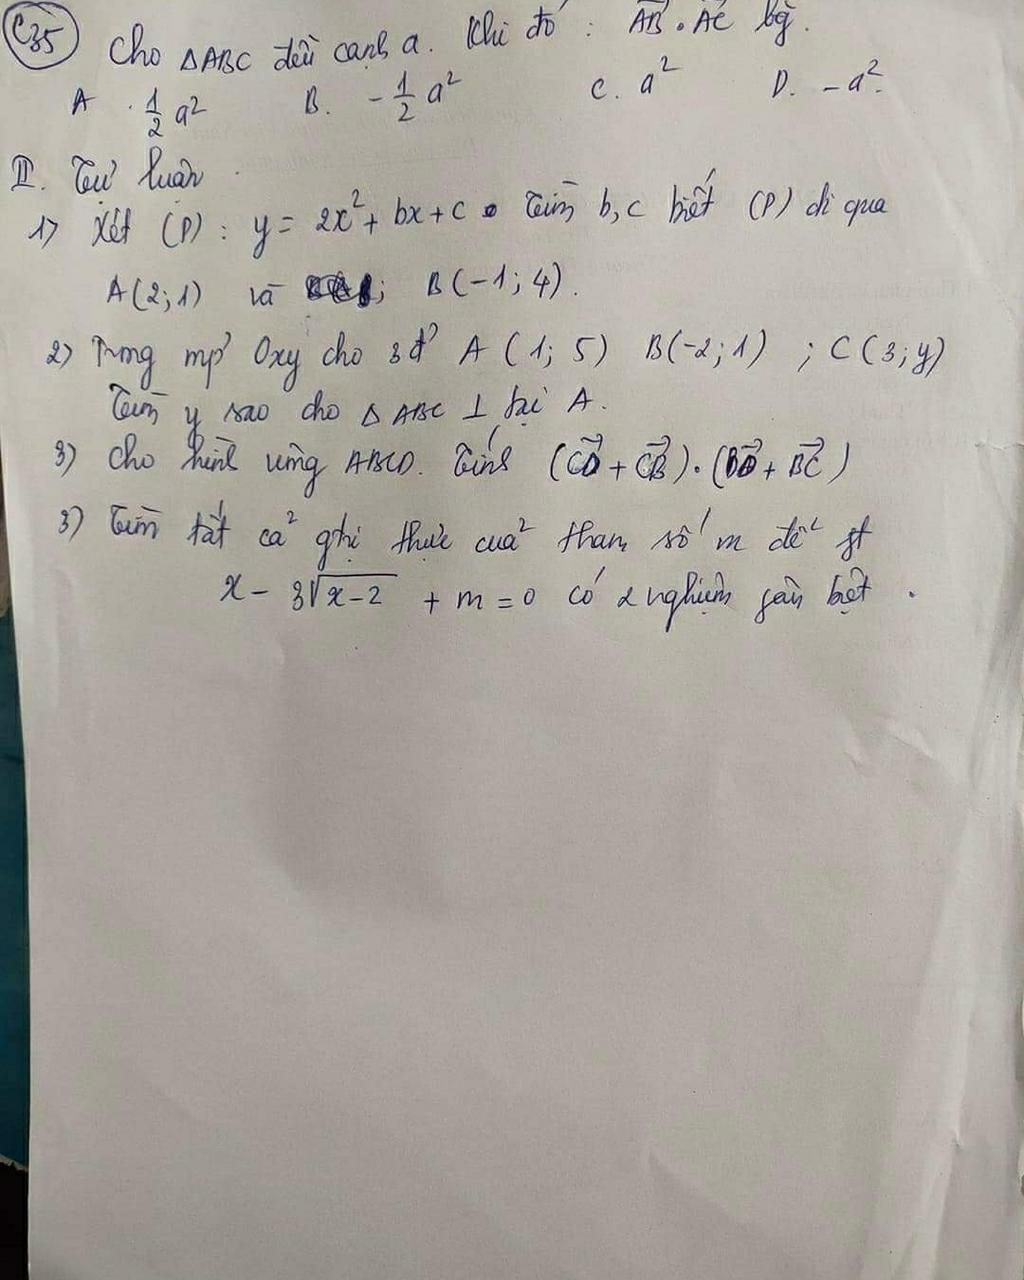 C35 Cho △ABC đều cạnh a. Khi đó : AB . AC bg.
A. 1/2 a² B. -1/2 a² C. a² D. -a².
II. Tự luận
1) Xét (P) : y = 2x² + bx + c. Tìm b, c biết (P) đi qua
A(2; 1) và ; B(-1; 4).
2) Trong mp' Oxy cho 3 đ' A (1; 5) B(-2; 1) ; C(3; y)
Tìm y sao cho △ ABC ⊥ tại A.
3) Cho hình vuông ABCD. Tính (CD + CB) . (BD + BC)
3) Tìm tất cả gtrị thực của tham số m để pt
x - 3√x-2 + m = 0 có 2 nghiệm phân biệt.